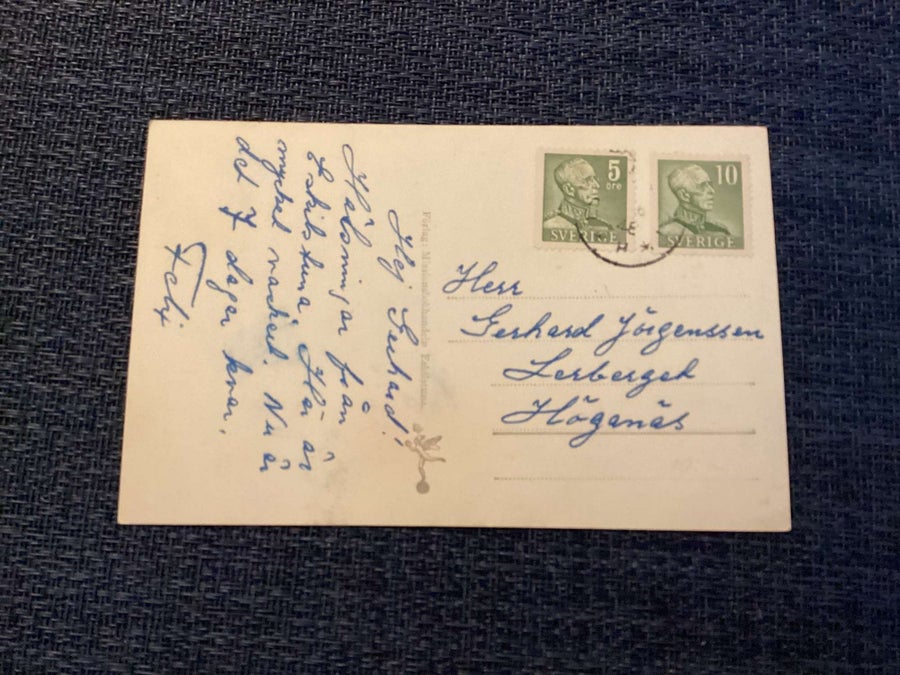 Hej Gerhard!
Hälsningar från
Eskilstuna. Här är
mycket vackert. Nu är
det 7 dagar kvar.
Felix
Förlag: Missionsbokhandeln Eskilstuna
5
öre
SVERIGE
10
SVERIGE
Herr
Gerhard Jörgenssen
Lerberget
Höganäs